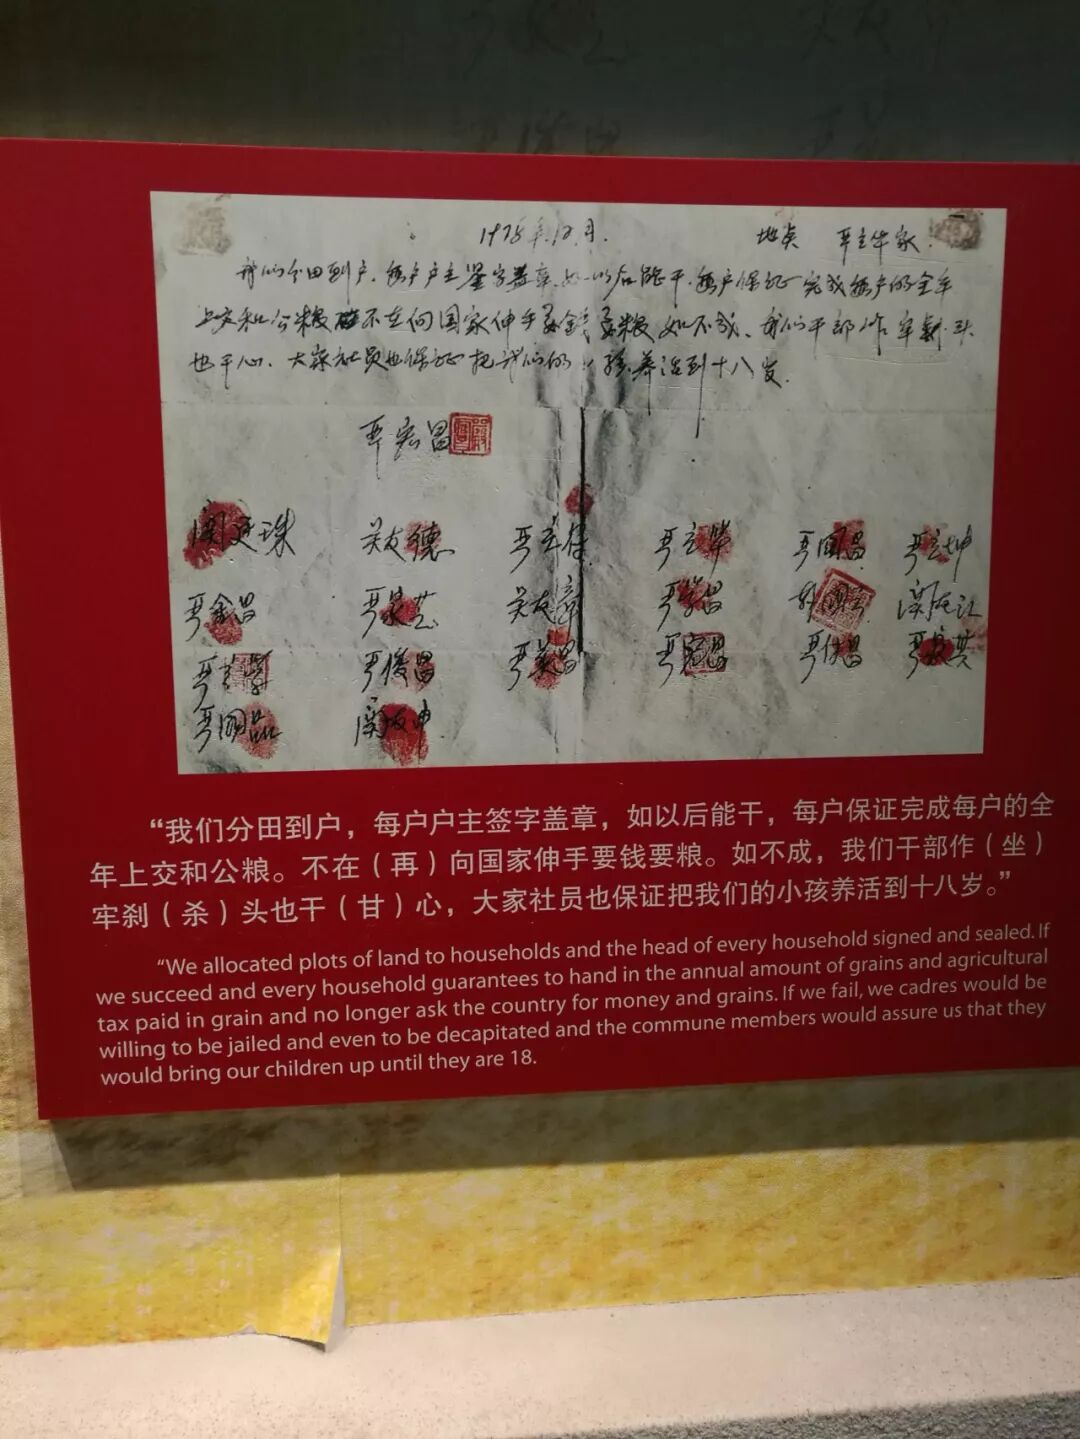 1978年12月. 地点 严立华家.
我们分田到户,每户户主签字盖章,如以后能干,每户保证完成每户的全年
上交和公粮 不在向国家伸手要钱要粮 如不成、我们干部作牢刹头
也干心、大家社员也保证把我们的小孩养活到十八岁.
严宏昌
关廷珠 吴友德 严立付 严立华 严国昌 严立坤
严金昌 吴友章 严学昌 关友江
严立学 严俊昌 严美昌 严宏昌 严付昌 严家其
严国品 关友申
“我们分田到户，每户户主签字盖章，如以后能干，每户保证完成每户的全
年上交和公粮。不在（再）向国家伸手要钱要粮。如不成，我们干部作（坐）
牢刹（杀）头也干（甘）心，大家社员也保证把我们的小孩养活到十八岁。”
“We allocated plots of land to households and the head of every household signed and sealed. If
we succeed and every household guarantees to hand in the annual amount of grains and agricultural
tax paid in grain and no longer ask the country for money and grains. If we fail, we cadres would be
willing to be jailed and even to be decapitated and the commune members would assure us that they
would bring our children up until they are 18.